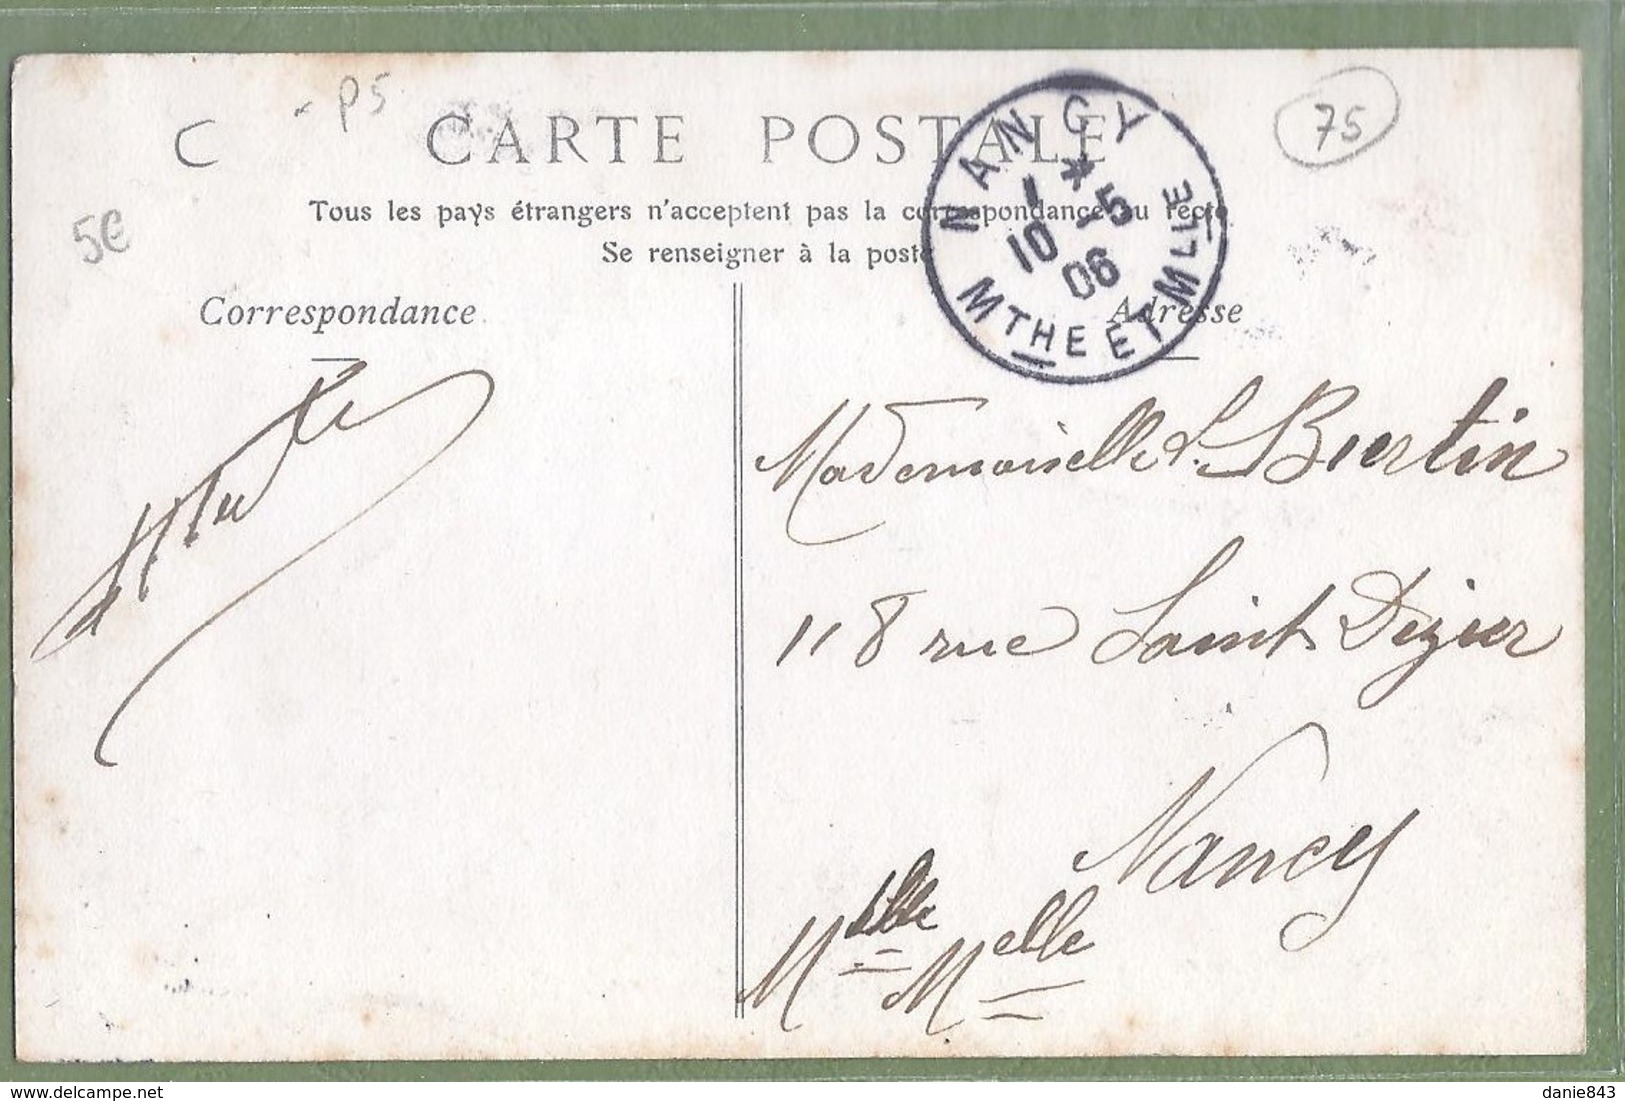 C
P5
75
5€
CARTE POSTALE
Tous les pays étrangers n'acceptent pas la correspondance au recto
Se renseigner à la poste
NANCY
1 * -5
10 06
MTHE ET MLLE
Correspondance
Adresse
Mademoiselle L. Biertin
118 rue Saint Dizier
Nancy
Melle
Melle
danie843